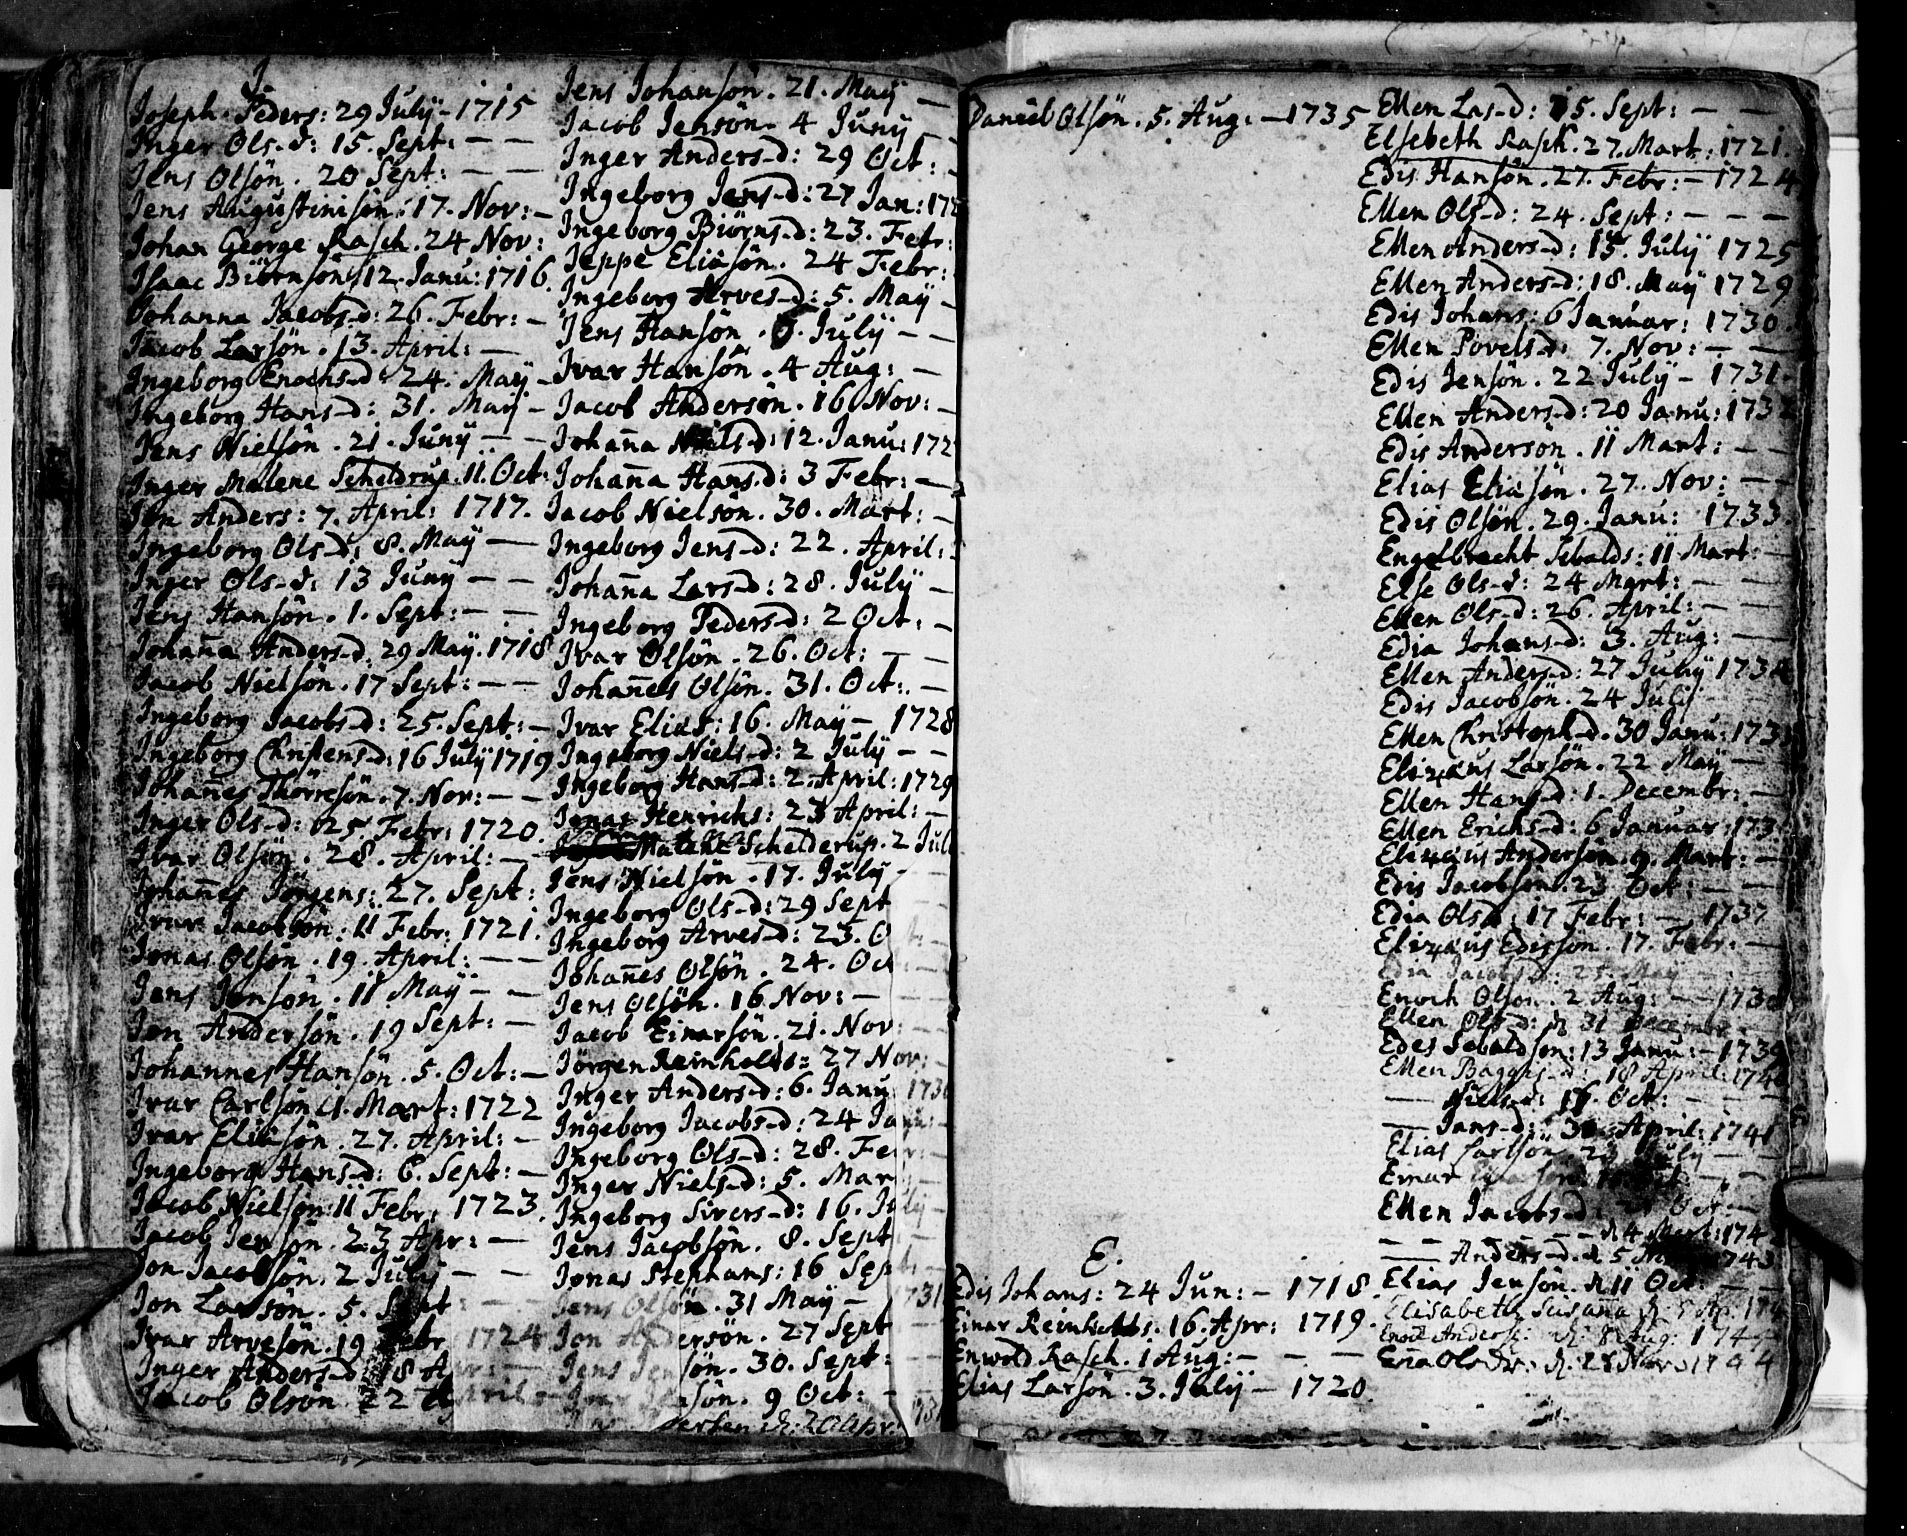 J
Joseph Peders: 29 Julÿ - 1715
Inger Ols-d: 15. Sept: — —
Jens Olsön. 20 Sept: — —
Jens Augustinisön. 17. Nov: —
Johan George Rasch. 24 Nov:
Isaac Biörnsön. 12. Janu: 1716.
Johanna Jacobs-d: 26. Febr: —
Jacob Larsön. 13. April: —
Ingeborg Enochs-d: 24. Maÿ -
Ingeborg Hans-d: 31. Maÿ -
Jens Nielsön. 21. Junÿ — —
Inger Malene Scheldrup. 11. Oct:
Jon Anders: 7. April: 1717.
Ingeborg Ols-d: 8. Maÿ —
Inger Ols-d: 13 Junÿ — —
Jens Hansön. 1. Sept: — —
Johaña Anders-d. 29 Maÿ. 1718
Jacob Nielsön. 17 Sept: — —
Ingeborg Jacobs-d: 25. Sept: —
Ingeborg Christens-d: 16 Julÿ 1719
Johañes Thörresön. 7. Nov: — —
Inger Ols-d: 25. Febr: 1720.
Ivar Olsön. 28. April: —
Johañes Jörgens: 27. Sept:
Ivar Jacobsön. 11 Febr: 1721.
Jonas Olsön. 19. April: — —
Jens Jensön. 11 Maÿ — —
Jon Andersön. 19 Sept: —
Johannes Hansön. 5. Oct: —
Ivar Carlsön 1. Mart: 1722
Ivar Eliasön. 27. April: —
Ingeborg Hans-d: 6. Sept: —
Jacob Nielsön: 11 Febr: 1723.
Jacob Jensön. 23 Apr: —
Jon Jacobsön. 2 Julÿ — —
Jon Larsön. 5. Sept — —
Ivar Arvesön. 19 Febr 1724
Inger Anders-d. 18 Apr: —
Jacob Olsön. 22 April —
Jens Johansön. 21. Maÿ —
Jacob Jensön. 4 Junÿ —
Inger Anders-d: 29 Oct: —
Ingeborg Jens-d: 27 Jan: 172
Ingeborg Biörns-d: 23. Febr:
Jeppe Eliasön. 24 Febr:
Ingeborg Arves-d: 5. Maÿ —
Jens Hansön. Julÿ — —
Ivar Hansön. 4 Aug: —
Jacob Andersön. 16. Nov: —
Johaña Niels-d: 12. Janu: 172
Johaña Hans-d: 3 Febr: —
Jacob Nielsön. 30. Mart: —
Ingeborg Jens-d: 22. April:
Johaña Lars-d: 28. Julÿ —
Ingeborg Peders-d: 2 Oct: —
Ivar Olsön. 26. Oct: — —
Johañes Olsön. 31. Oct: —
Ivar Elias: 16. Maÿ — 1728
Ingeborg Niels-d: 2 Julÿ — —
Ingeborg Hans-d: 2. April: 1729
Jonas Henrichs: 23 April: —
Malene Schelderup. 2 Jul
Jens Nielsön. 17. Julÿ —
Ingeborg Ols-d: 29 Sept
Ingeborg Arves-d: 23. Oct: —
Johañes Olsön. 24. Oct —
Jens Olsön. 16. Nov: —
Jacob Einarsön. 21. Nov: —
Jörgen Reinholds: 27 Nov: —
Inger Anders-d: 6. Janu 1730
Ingeborg Jacobs-d: 24 Janu: —
Ingeborg Ols-d: 28. Febr: —
Inger Niels-d: 5. Mar —
Ingeborg Sivers-d: 16. Julÿ —
Jens Jacobsön. 8. Sept —
Jonas Stephans: 16 Sept: —
Jens Olsön. 31 Maÿ — 1731
Jon Andersön. 27 Sept —
Jens Jensön. 30. Sept: —
9 Oct: —
20 Apr:
Daniel Olsön. 5. Aug: — 1735
E.
Edis Johans: 24 Jun: — 1718.
Einar Reinholds. 16. Apr: 1719.
Enwold Rasch. 1 Aug: — — —
Elias Larsön. 3. Julÿ — 1720
Ellen Las-d: 15. Sept: — —
Elsebeth Rasch. 27. Mart: 1721.
Edis Hansön. 27. Febr: — 1724
Ellen Ols-d: 24. Sept: — — —
Ellen Anders-d: 15. Julÿ 1725
Ellen Anders-d: 18. Maÿ 1729
Edis Johans: 6 Januar: 1730.
Ellen Povels-d: 7. Nov: — —
Edis Jensön. 22 Julÿ — 1731.
Ellen Anders-d: 20 Janu: 1732
Edis Andersön. 11 Mart: — —
Elias Eliasön. 27. Nov: — —
Edis Olsön. 29. Janu: 1733.
Engelbrecht Sebalds: 11 Mart: —
Else Ols-d: 24 Mart: — —
Ellen Ols-d: 26. April: — —
Edia Johans-d: 3. Aug: —
Ellen Anders-d: 27 Julÿ 1734
Edis Jacobsön. 24 Julÿ — —
Ellen Christoph-d. 30 Janu: 173
Elizæus Larsön. 22 Maÿ —
Ellen Hans-d: 1. Decembr: —
Ellen Erichs-d: 6 Januar: 173
Elizæus Andersön. 9. Mart: —
Edis Jacobsön. 23 Oct: — —
Edia Ols-d: 17 Febr: — 1737
Elizæus Edissön. 17. Febr: —
Edia Jacobs-d: 25. Maÿ
Enoch Olsön. 2 Aug: — 1738
Ellen Ols-d: 31 Decembr —
Edes Sebaldsön: 13 Janu: — 1739
Ellen Baggis-d: 18 April: 1740
— Niels-d: Oct: — —
— Jans-d: April: 1741
Elias Carlsön 23 Julÿ — —
Einar
Ellen Jacobs-d: Oct: —
— — — — 4 Mart: 174
— Anders-d. 5 1743
Elias Jensön. 11 Oct: —
Elisabeth Susaña
Enoch Anders: 8 Aug: 1744
28 Nov: 1744